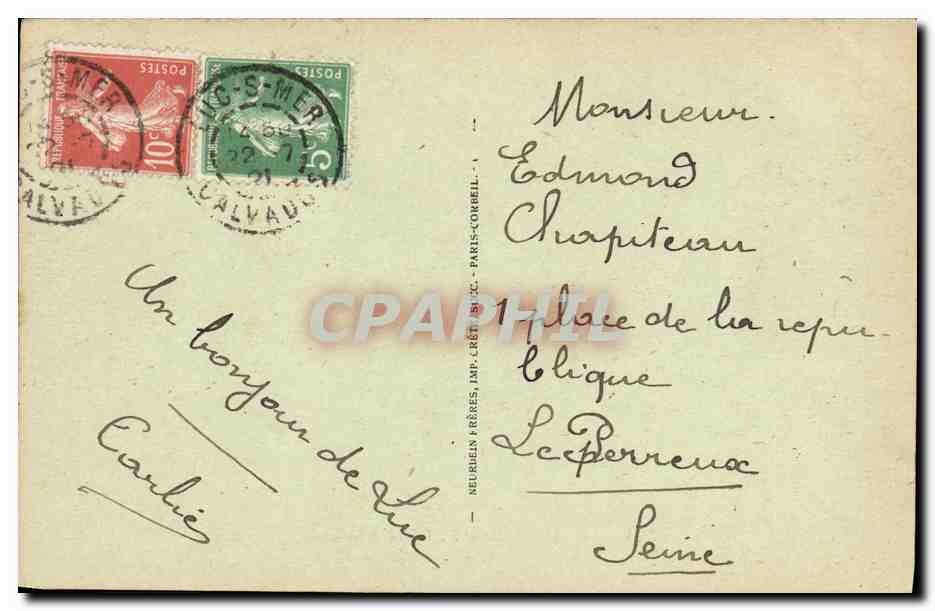 POSTES
REPUBLIQUE FRANÇAISE
10c
POSTES
5
LUC-S-MER
22 -7
21
CALVADOS
Monsieur
Edmond
Chapiteau
1 place de la répu-
blique
Le Perreux
Seine
Un bonjour de Luc
NEURDEIN FRÈRES, IMP. CRÉTÉ SUCC. - PARIS-CORBEIL. -
CPAPHIL